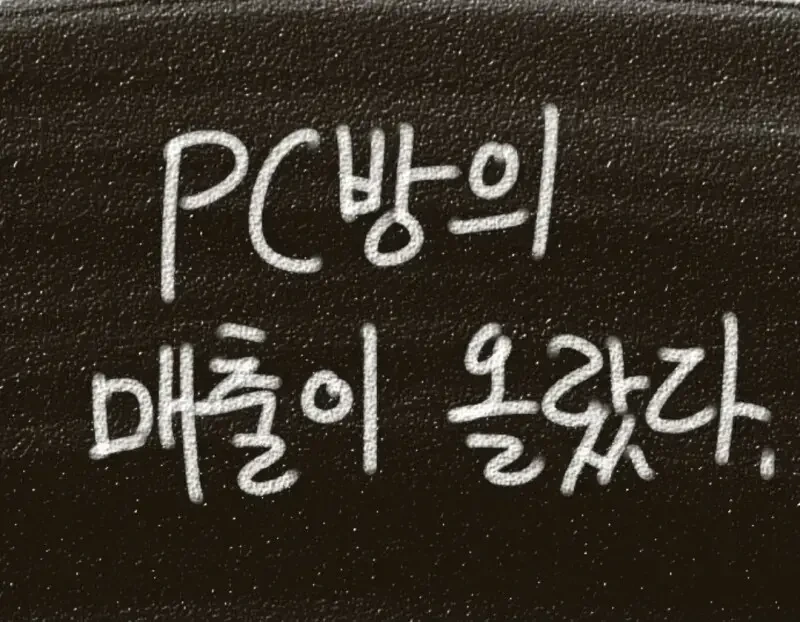 PC방의
매출이 올랐다.